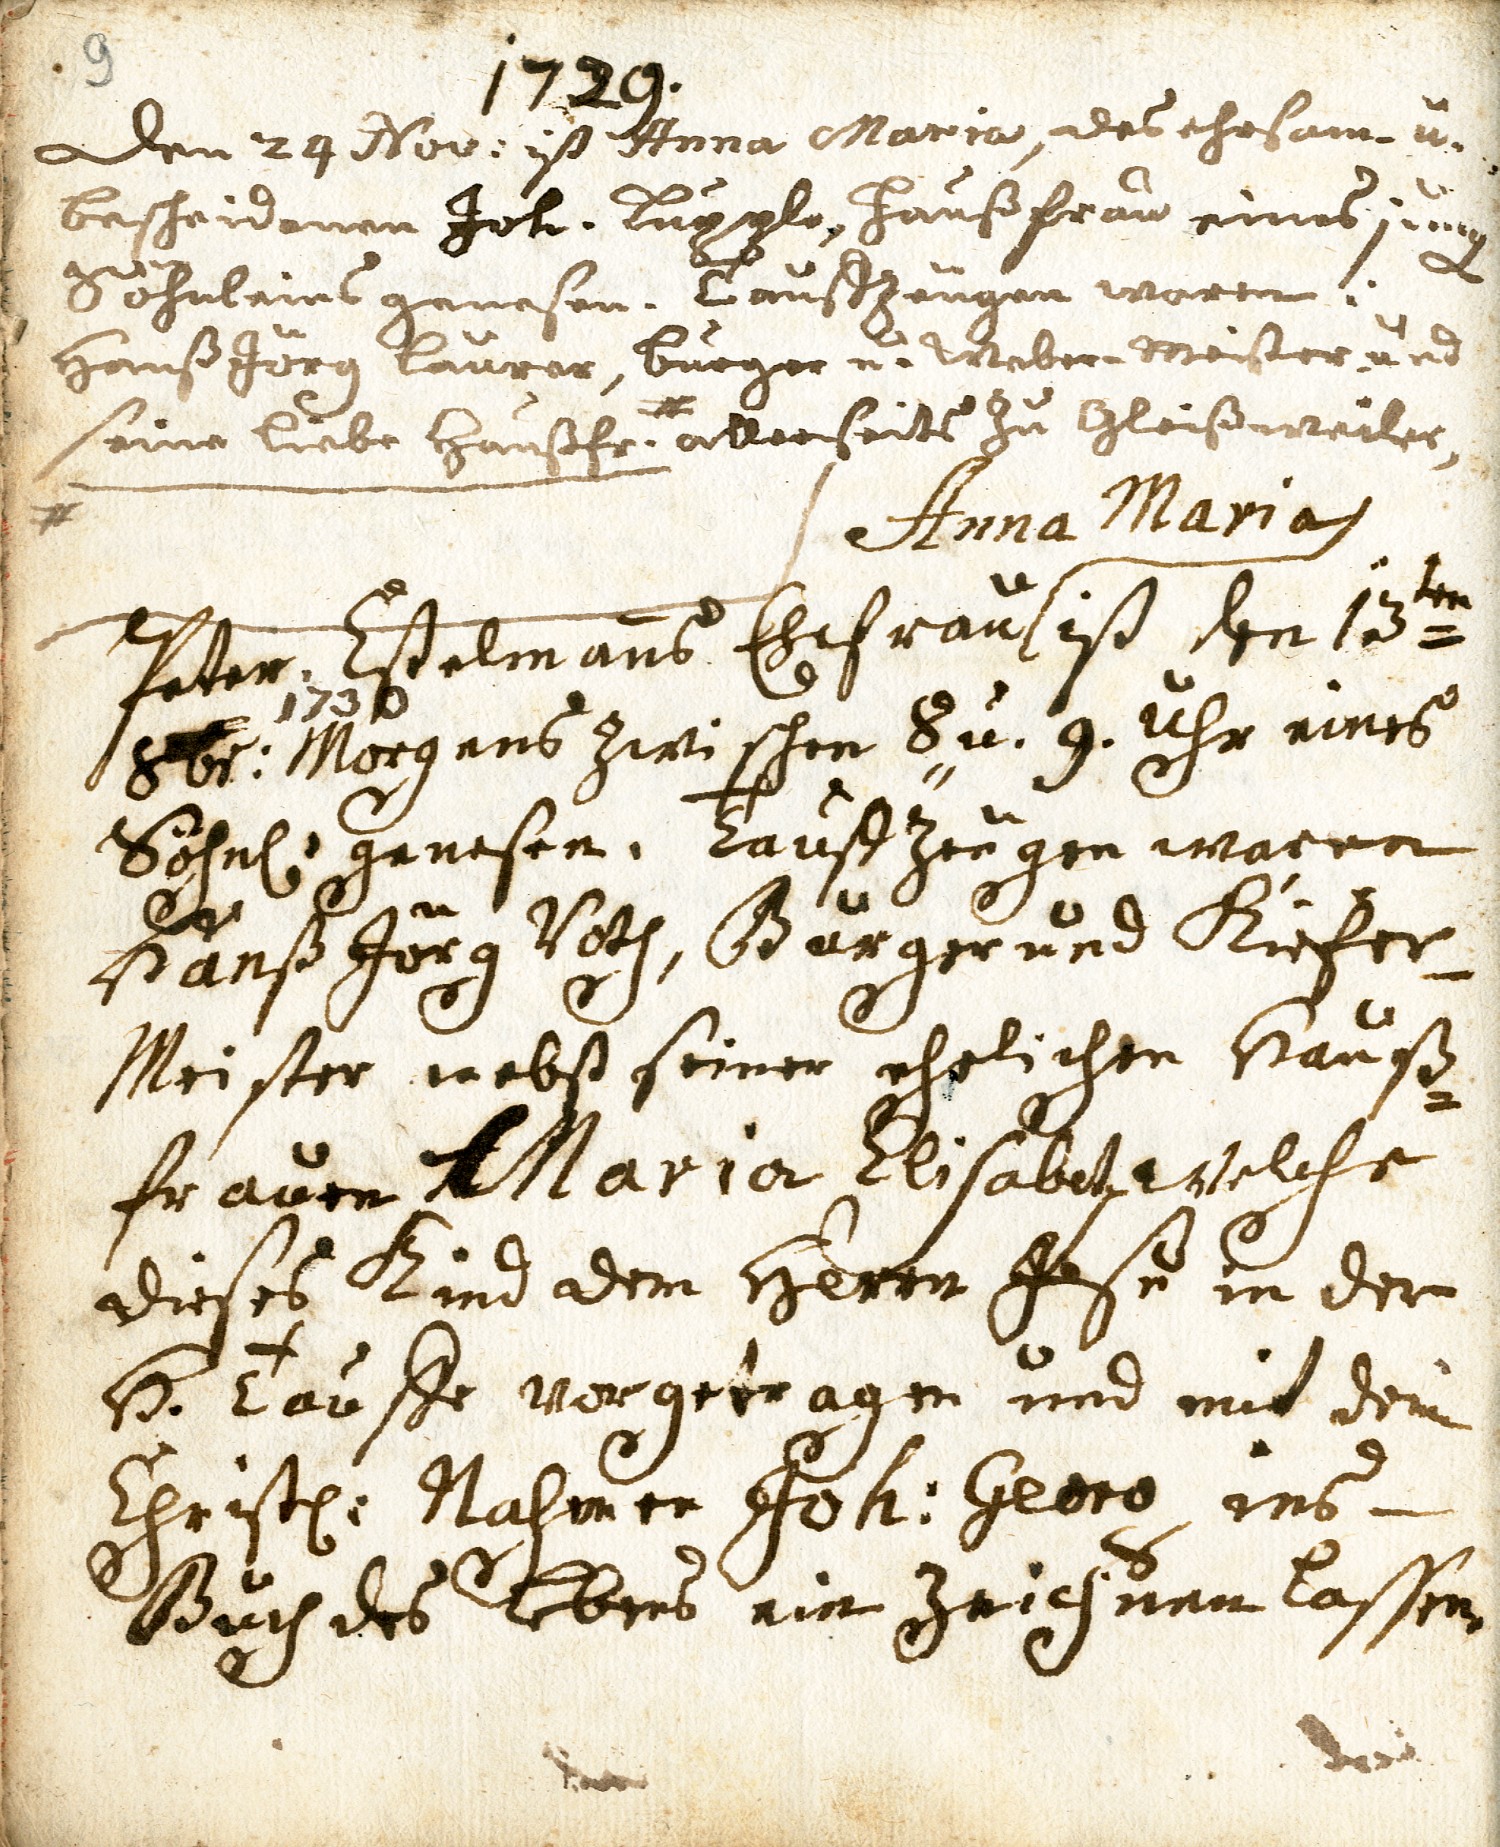 9
1729.
Den 24 Nov: ist Anna Maria, des ehrsam- u.
bescheidenen Joh. haußfrau eines jung
Söhnleins genesen. Tauffzeugen waren:
Hanß Jörg Laurer, burger u. Weber-Meister und
seine liebe Haußfr. # allerseits zu Gleißweiler,
# Anna Maria
Peter Estelmans Ehefrau ist den 13ten=
1730
8br: Morgens zwischen 8 u. 9. Uhr eines
Söhnl: genesen. Tauffzeugen waren
Hanß Jörg Voth, Burger und Kiefer-
Meister nebst seiner ehelichen Hauß=
frauen Maria Elisabeth, welche
dieses Kind dem Herrn Jesu in der
H. Tauffe vorgetragen und mit dem
Christl: Nahmen Joh: Georg ins-
Buch des Lebens ein zeichnen lassen.